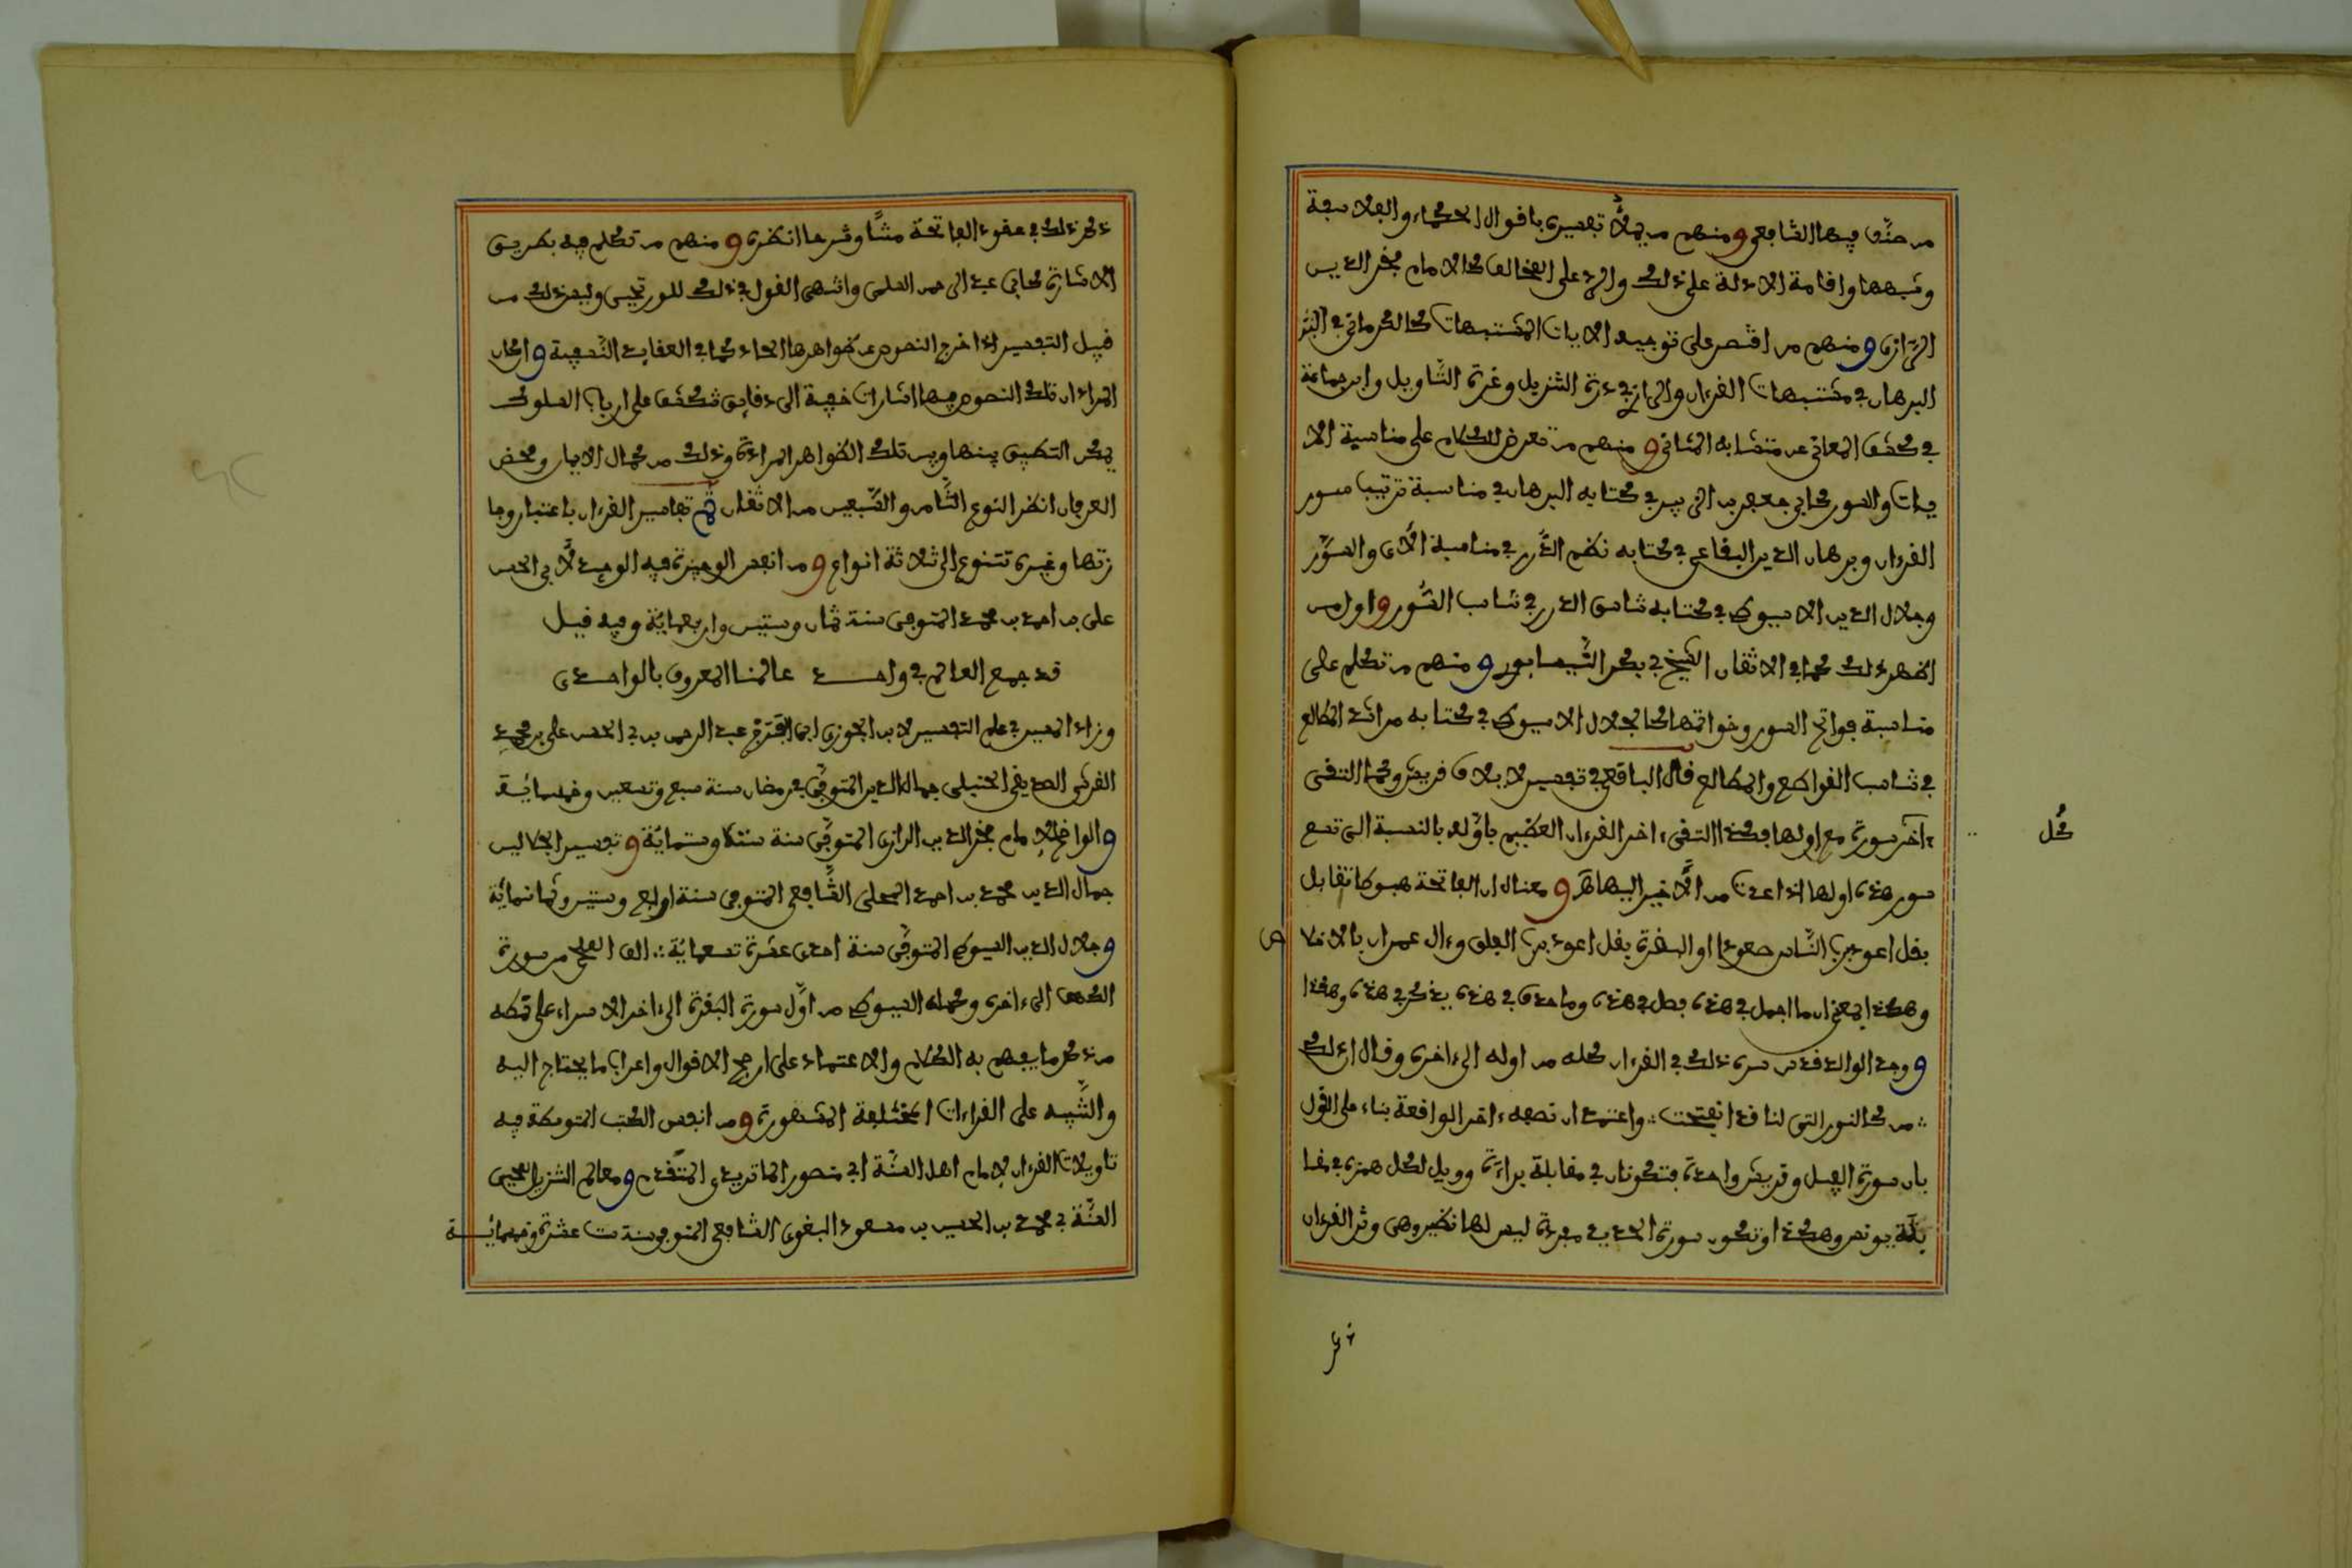 من صنف فيها الشافعي ومنهم من يملأ تفسيره باقوال الحكماء والفلاسفة
وشبهها واقامة الادلة على ذلك والرد على المخالف كالامام فخر الدين
الرازي ومنهم من اقتصر على توجيه الايات المشتبهات كالكرماني في
البرهان في مشتبهات القرءان والرازي في درة التنزيل وغرة التأويل وابن جماعة
في كشف المعاني عن متشابه المثاني ومنهم من تعرض للكلام على مناسبة الا
يات والسور كابي جعفر بن الزبير في كتابه البرهان في مناسبة ترتيب سور
القرءان وبرهان الدين البقاعي في كتابه نظم الدرر في مناسبة الآي والسور
وجلال الدين الاسيوطي في كتابه تناسق الدرر في تناسب السور واول من
اظهر ذلك كما في الاتقان الشيخ بكر النيسابوري ومنهم من تكلم على
مناسبة فواتح السور وخواتمها كالجلال الاسيوطي في كتابه مراصد المطالع
في تناسب القواطع والمطالع قال الباقعي في تفسير لايلاف قريش وكما التقى
ءاخر سورة مع اولها فكذا التقى ءاخر القرءان العظيم باوله بالنسبة الى تسع
كل
سور هذه اولها اذا عدت من الاخير اليها ومعناه ان الفاتحة هبوطا تقابل
بقل اعوذ برب الناس صعودا او البقرة بقل اعوذ برب الفلق وءال عمران بالاخلا
ص
وهكذا بمعنى ان ما اجمل في هذه فصل في هذه وما حذف في هذه يذكر في هذه وهكذا
ووجد الوالد قدس سره ذلك في القرءان كله من اوله الى ءاخره وقال ان ذلك
من كالنور التي لنا قد انفتحت واعتمد ان نصفه ءاخر الواقعة بناء على القول
بان سورة الفيل وقريش واحدة فتكونان في مقابلة براءة وويل لكل همزة في مقا
بلة يونس وهكذا وتكون سورة الحديد مفردة ليس لها نظير وهي وتر القرءان
ذكر
ذكر ذلك في عقود الفاتحة متنا وشرحا انظره ومنهم من تكلم فيه بطريق
الاشارة كابي عبد الرحمن السلمي وانتهى القول في ذلك للورتجبي وليس ذلك من
قبيل التفسير اذ اخرج النصوص عن ظواهرها الحاد كما في العقايد النسفية وانما
المراد ان تلك النصوص فيها اشارات خفية الى دقايق تنكشف على ارباب السلوك
يمكن التطبيق بينها وبين تلك الظواهر المرادة وذلك من كمال الايمان ومحض
العرفان انظر النوع الثامن والسبعين من الاتقان ثم تفاسير القرءان باعتبار وجا
زتها وغيره تتنوع الى ثلاثة انواع ومن انفس الوجيزة فيه الوجيز لابي الحسن
علي بن احمد بن محمد المتوفى سنة ثمان وستين واربعمائة وفيه قيل
قد جمع العالم في واحد عالمنا المعروف بالواحدي
وزاد المسير في علم التفسير لابن الجوزي ابي الفرج عبد الرحمن بن ابي الحسن علي بن محمد
القرشي الصديقي الحنبلي جمال الدين المتوفى في رمضان سنة سبع وتسعين وخمسمائة
والواضح للامام فخر الدين الرازي المتوفى سنة ستمائة وتفسير الجلالين
جمال الدين محمد بن احمد المحلي الشافعي المتوفى سنة اربع وستين وثمانمائة
وجلال الدين السيوطي المتوفى سنة احدى عشرة تسعمائة الف المحلي من سورة
الكهف الى ءاخره وكمله السيوطي من اول سورة البقرة الى ءاخر الاسراء على نمطه
من ذكر ما يفهم به الكلام والاعتماد على ارجح الاقوال واعراب ما يحتاج اليه
والتنبيه على القراءات المختلفة المشهورة ومن انفس الكتب المتوسطة فيه
تاويلات القرءان لامام اهل السنة ابي منصور الماتريدي المتقدم ومعالم التنزيل لمحيي
السنة محمد بن الحسين بن مسعود البغوي الشافعي المتوفى سنة ست عشرة وخمسمائة